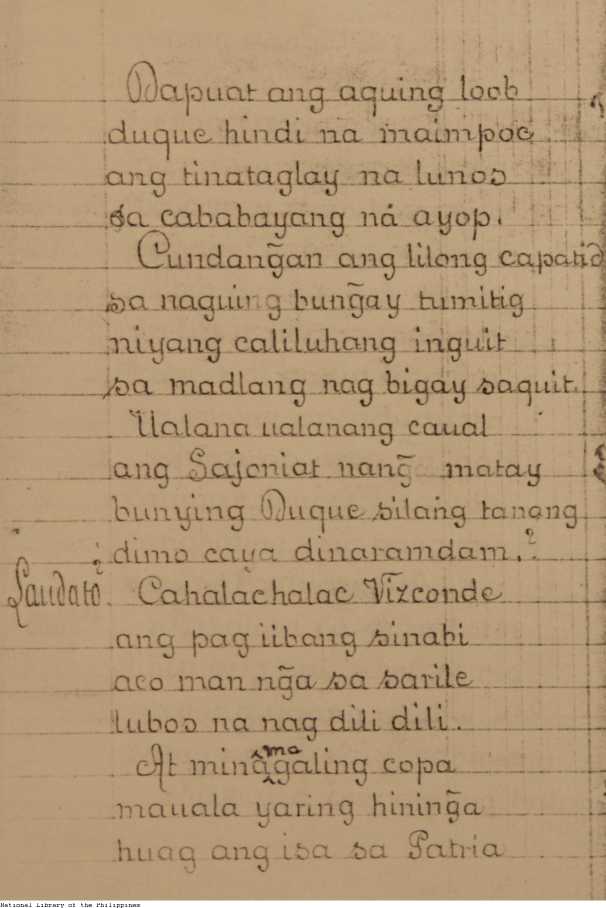 Dapuat ang aquing loob
duque hindi na maimpoc
ang tinataglay na lunos
sa cababayang ná ayop.
Cundang̃an ang lilong capatid
sa naguing bung̃ay tumitig
niyang caliluhang inguit
sa madlang nag bigay saquit.
Ualana ualanang caual
ang Sajoniat nang̃ matay
bunying Duque silang tanang
¿dimo caya dinaramdam.?
Laudato. Cahalachalac Vizconde
ang pag iibang sinabi
aco man ng̃a sa sarile
lubos na nag dili dili.
At minamagaling copa
mauala yaring hining̃a
huag ang isa sa Patria
National Library of the Philippines